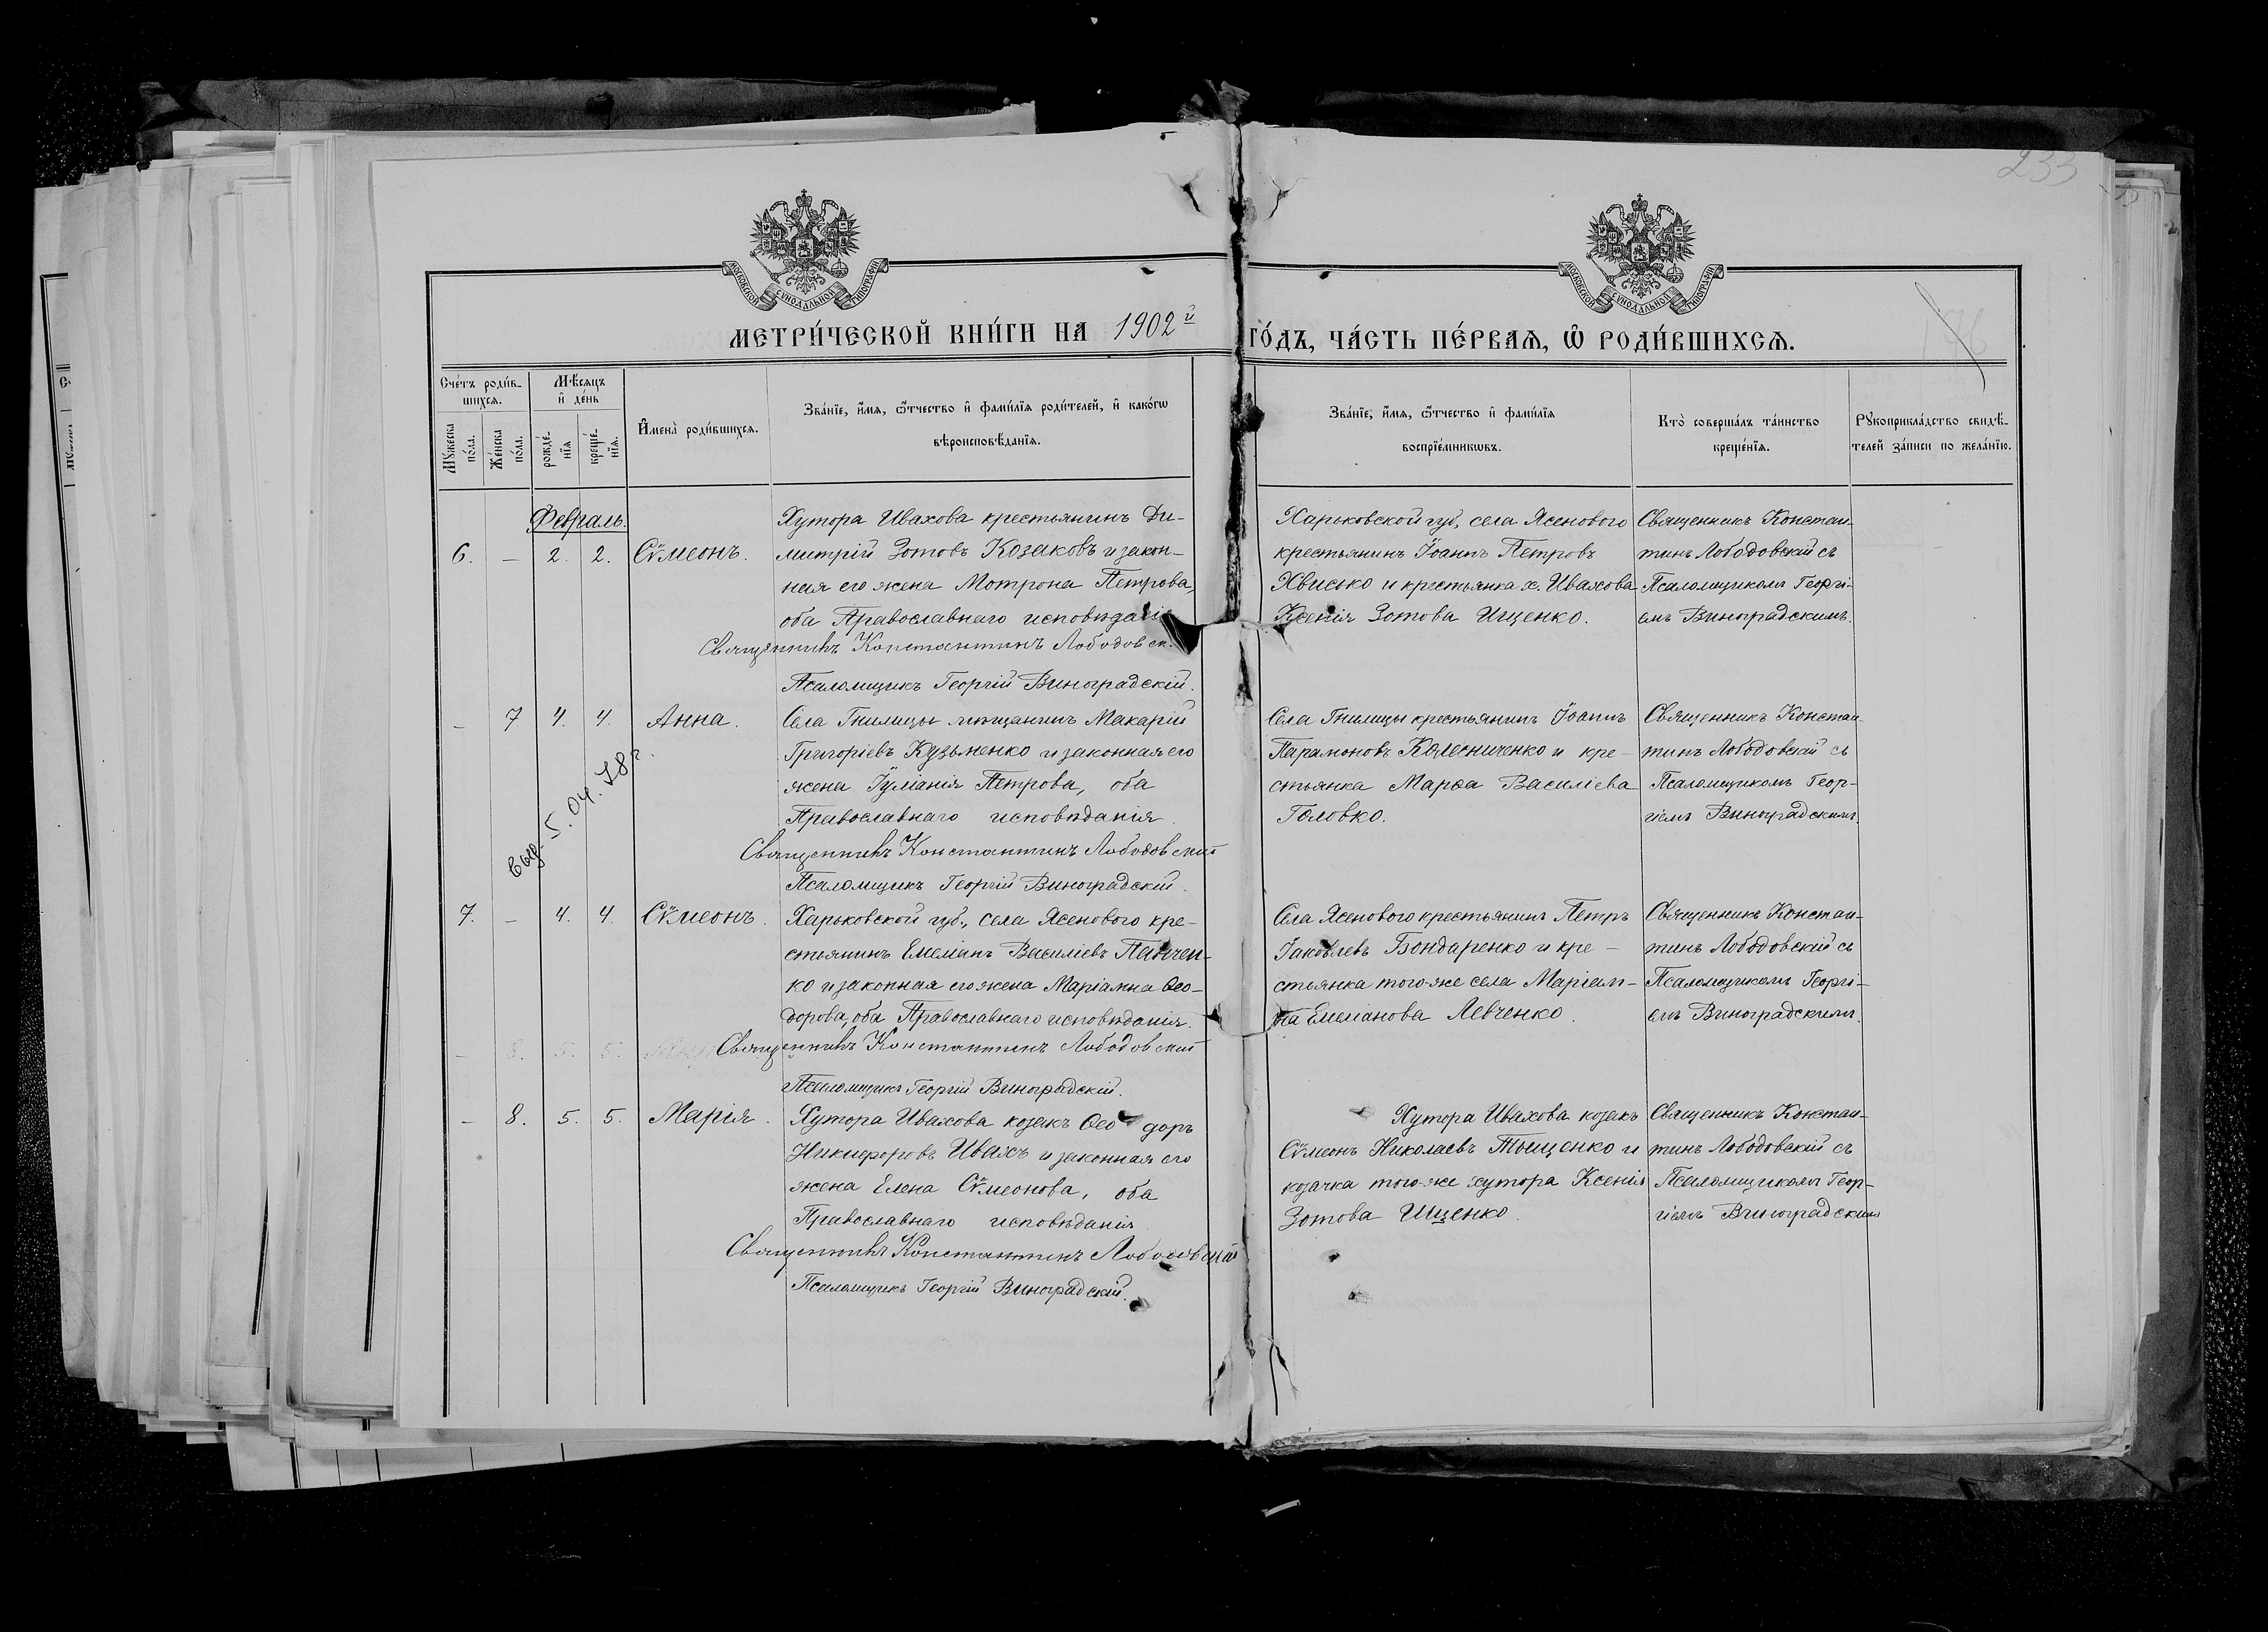 233
МОСКОВСКОЙ СѴНОДАЛЬНОЙ ТИПОГРАФІИ
МОСКОВСКОЙ СѴНОДАЛЬНОЙ ТИПОГРАФІИ
МЕТРИ́ЧЕСКОЙ КНИ́ГИ НА 1902й ГО́ДЪ, ЧА́СТЬ ПЕ́РВАѦ, Ѽ РОДИ́ВШИХСѦ.
Сче́тъ роди́в-
шихсѧ.
Мѣсѧцъ
и҆ де́нь
Мꙋжеска по́ла.
Же́нска по́ла.
рожде́-
нїѧ
креще́-
нїѧ.
И҆мена̀ роди́вшихсѧ.
Зва́нїе, и҆́мѧ, ѻ҆́тчество и҆ фами́лїѧ роди́телей, и҆ како́гѡ
вѣроисповѣ́данїѧ.
Зва́нїе, и҆́мѧ, ѻ҆́тчество и҆ фами́лїѧ
воспрїе́мникѡвъ.
Кто̀ соверша́лъ та́инство
креще́нїѧ.
Рꙋкоприкла́дство свидѣ́-
телей за́писи по жела́нїю.
Февраль.
6. — 2. 2. Сѵмеонъ.
Хутора Ивахова крестьянинъ Ди-
митрій Зотовъ Козаковъ и закон-
ная его жена Мотрона Петрова,
оба Православнаго исповѣданія
Священникъ Константинъ Лободовск
Псаломщикъ Георгій Виноградскій.
Харьковской губ., села Ясенового
крестьянинъ Іоаннъ Петровъ
Хвисько и крестьянка х. Ивахова
Ксенія Зотова Ищенко.
Священникъ Констан-
тинъ Лободовскій съ
Псаломщикомъ Георгі-
емъ Виноградскимъ.
— 7 4. 4. Анна.
выд. 5. 04. 78 г.
Села Гнилицы мѣщанинъ Макарій
Григоріевъ Кузьменко и законная его
жена Іуліанія Петрова, оба
Православнаго исповѣданія.
Священникъ Константинъ Лободовскій
Псаломщикъ Георгій Виноградскій.
Села Гнилицы крестьянинъ Іоаннъ
Парамоновъ Колесниченко и кре-
стьянка Марѳа Василіева
Головко.
Священникъ Констан-
тинъ Лободовскій съ
Псаломщикомъ Геор-
гіемъ Виноградскимъ.
7. — 4. 4. Сѵмеонъ.
Харьковской губ., села Ясенового кре-
стьянинъ Емеліанъ Василіевъ Панчен-
ко и законная его жена Маріамна Ѳео-
дорова, оба Православнаго исповѣданія.
Священникъ Константинъ Лободовскій
Псаломщикъ Георгій Виноградскій.
Села Ясенового крестьянинъ Петръ
Іаковлевъ Бондаренко и кре-
стьянка того-же села Маріам-
на Емеліанова Левченко.
Священникъ Констан-
тинъ Лободовскій съ
Псаломщикомъ Георгі-
емъ Виноградскимъ.
— 8. 5. 5. Марія.
Хутора Ивахова козакъ Ѳеодоръ
Никифоровъ Ивахъ и законная его
жена Елена Сѵмеонова, оба
Православнаго исповѣданія
Священникъ Константинъ Лободовскій
Псаломщикъ Георгій Виноградскій.
Хутора Ивахова козакъ
Сѵмеонъ Николаевъ Тыщенко и
козачка того-же хутора Ксенія
Зотова Ищенко.
Священникъ Констан-
тинъ Лободовскій съ
Псаломщикомъ Геор-
гіемъ Виноградскимъ